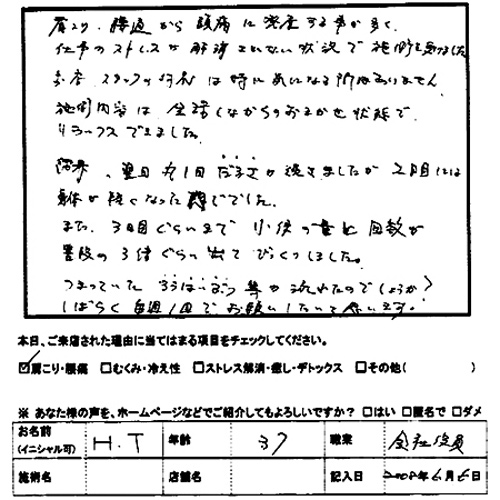 肩こり、腰通から頭痛に発症する事が多く、
仕事のストレスが解消されない状況で施術を受けました
お店 スタッフの対応は特に気になる所はありません。
施術内容は 会話しながらのおまかせ状態で
リラックスできました。
結果、翌日丸1日だるさが残りましたが2日目には
身体が軽くなった感じでした。
また、3日目ぐらいまで 小便の量と回数が
普段の3倍ぐらい出てびっくりしました。
つまっていた 老廃物等が流れたのでしょうか?
しばらく毎週1回でお願いしたいと思います。
本日、ご来店された理由に当てはまる項目をチェックしてください。
☑肩こり・腰痛 □むくみ・冷え性 □ストレス解消・癒し・デトックス □その他( )
※ あなた様の声を、ホームページなどでご紹介してもよろしいですか? □はい □匿名で □ダメ
お名前 (イニシャル可) H.T 年齢 37 職業 会社役員
施術名 店舗名 記入日 2008年6月6日